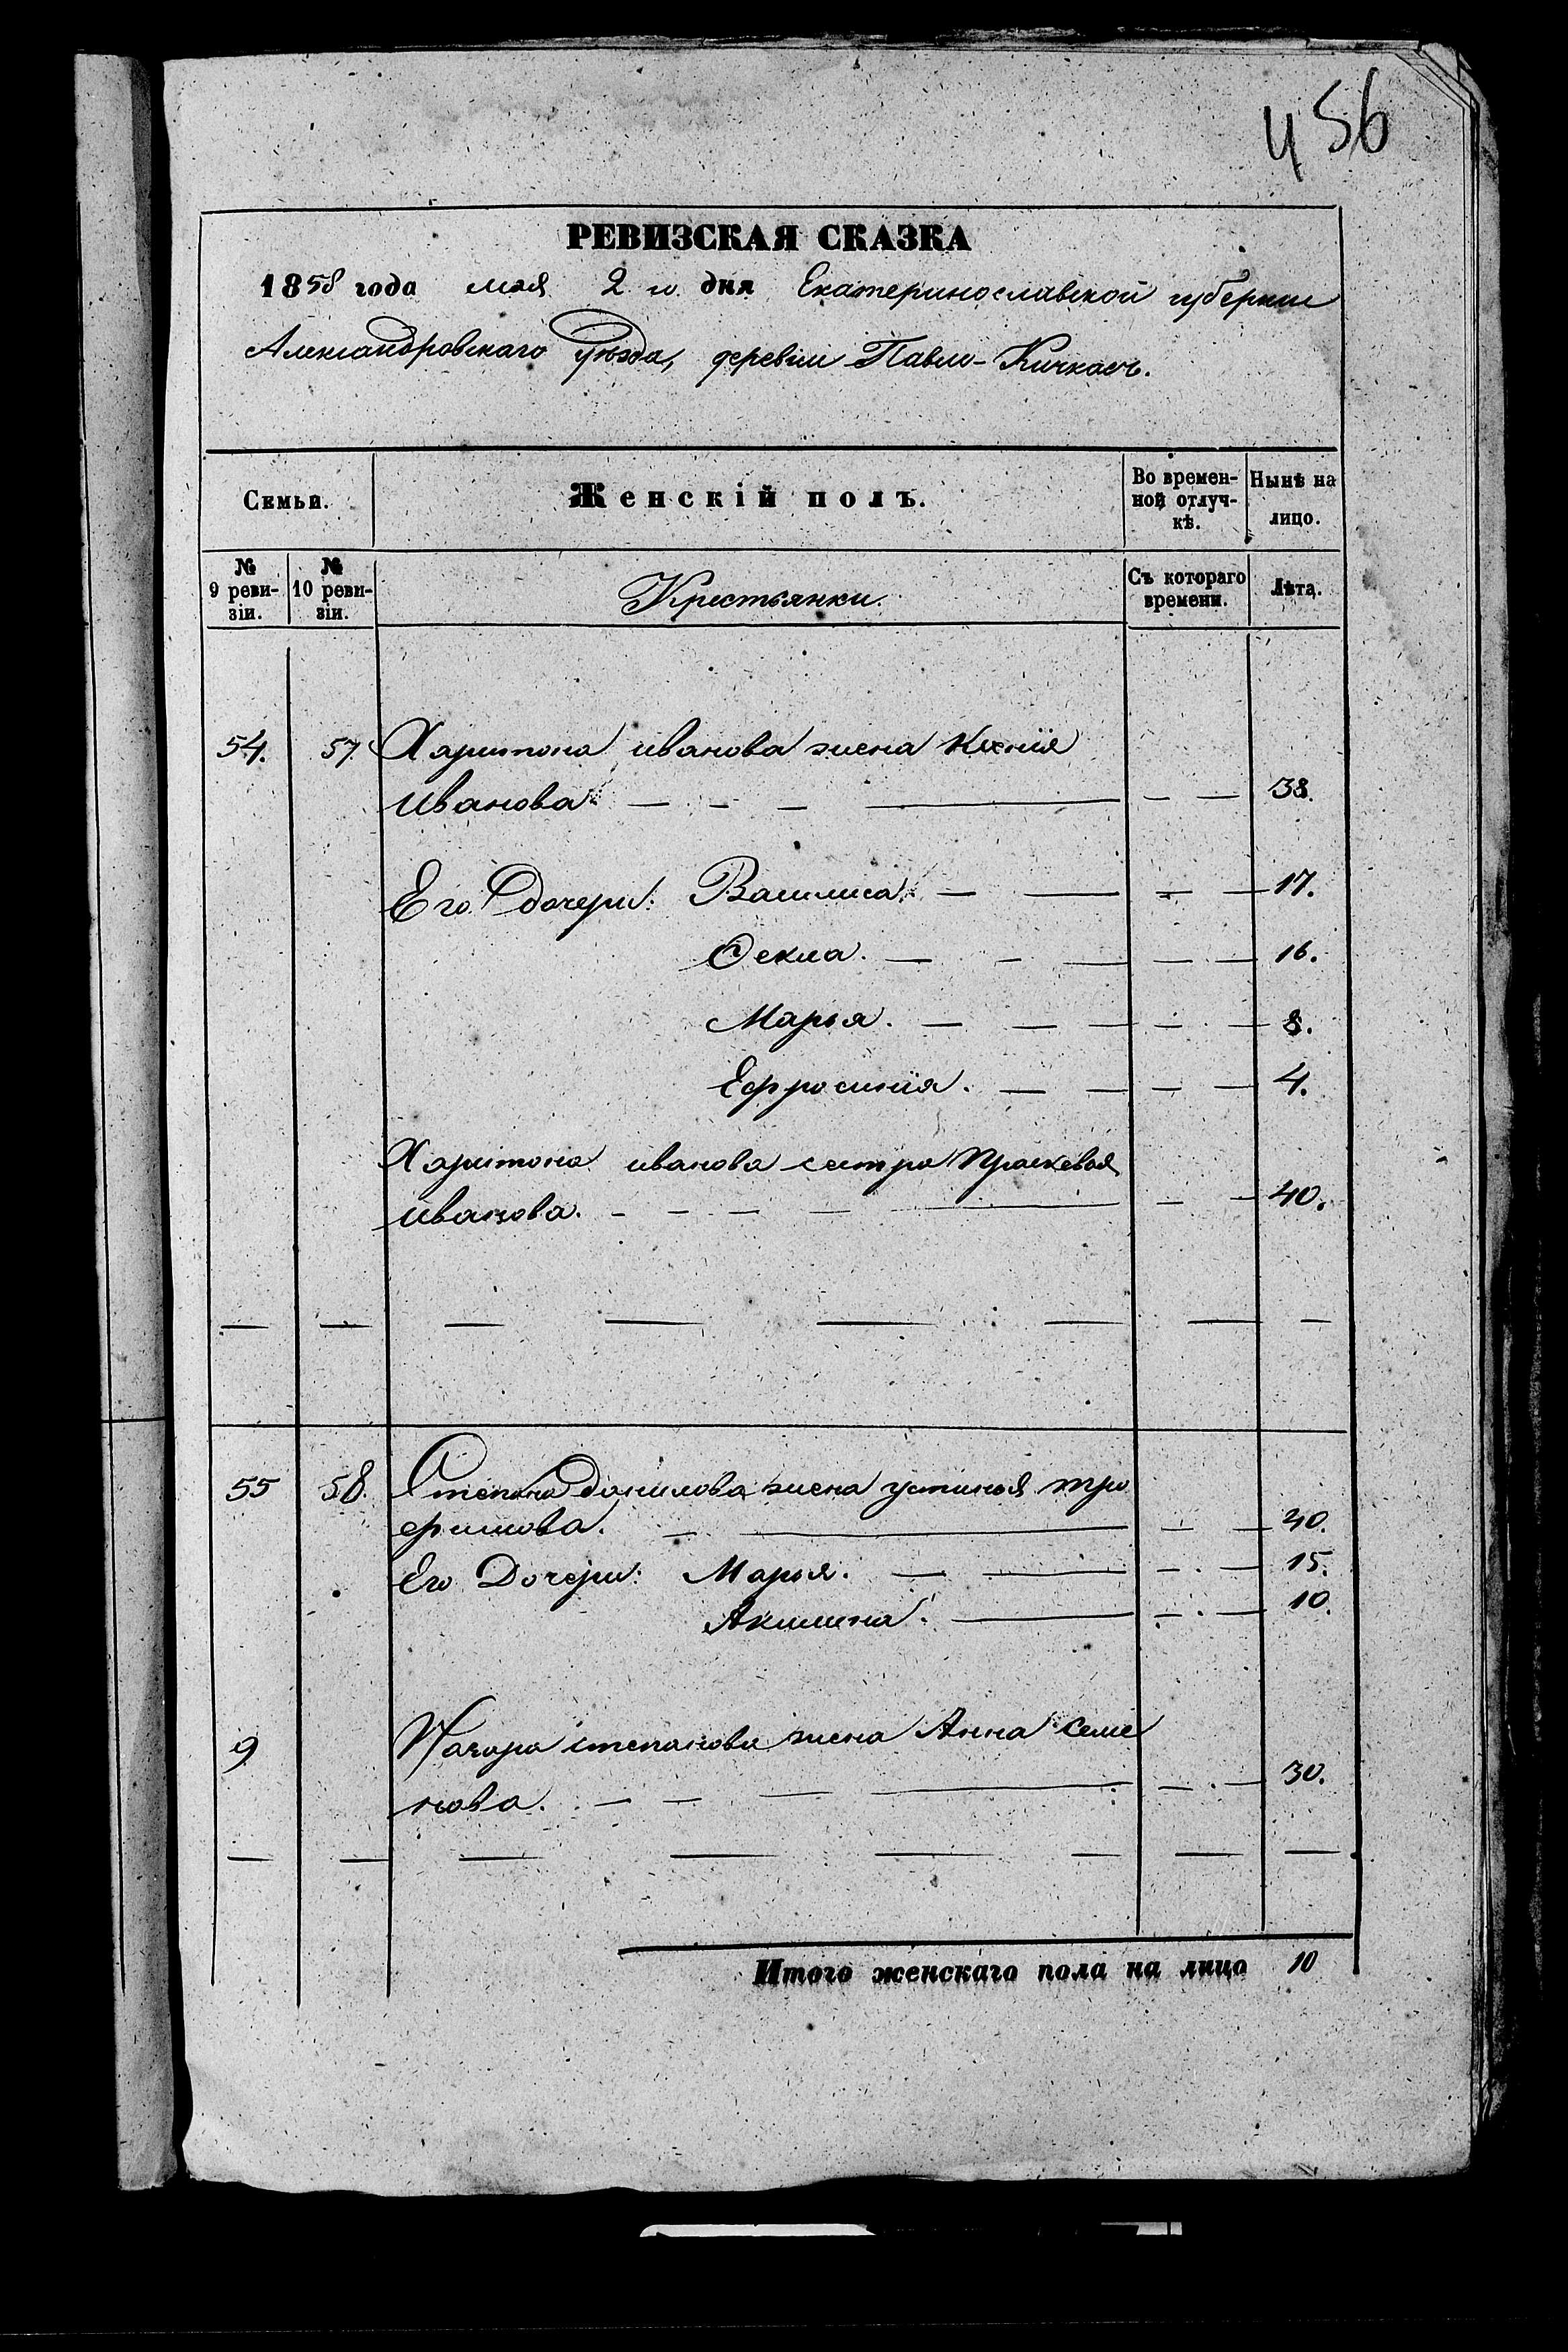 456
РЕВИЗСКАЯ СКАЗКА
1858 года мая 2 го дня Екатеринославской губернии
Александровскаго уѣзда, деревни Павло-Кичкасъ.
Семьи. Женскій полъ. Во времен-ной отлуч-кѣ. Нынѣ на лицо.
№ 9 реви-зіи. № 10 реви-зіи. Крестьянки. Съ котораго времени. Лѣта.
54. 57. Харитона иванова жена Ксенія
Иванова. — — — — — — 38.
Его дочери: Василиса. — — — — 17.
Ѳекла. — — — — — 16.
Марья. — — — — — 8.
Ефросинія. — — — — 4.
Харитона иванова сестра Прасковья
иванова. — — — — — — — 40.
55 58. Степана данилова жена устинья тро
фимова. — — — — 40.
Его Дочери: Марья. — — — — 15.
Акилина. — — — 10.
9 степанова жена Анна Семе
нова. — — — — — — 30.
Итого женскаго пола на лицо 10